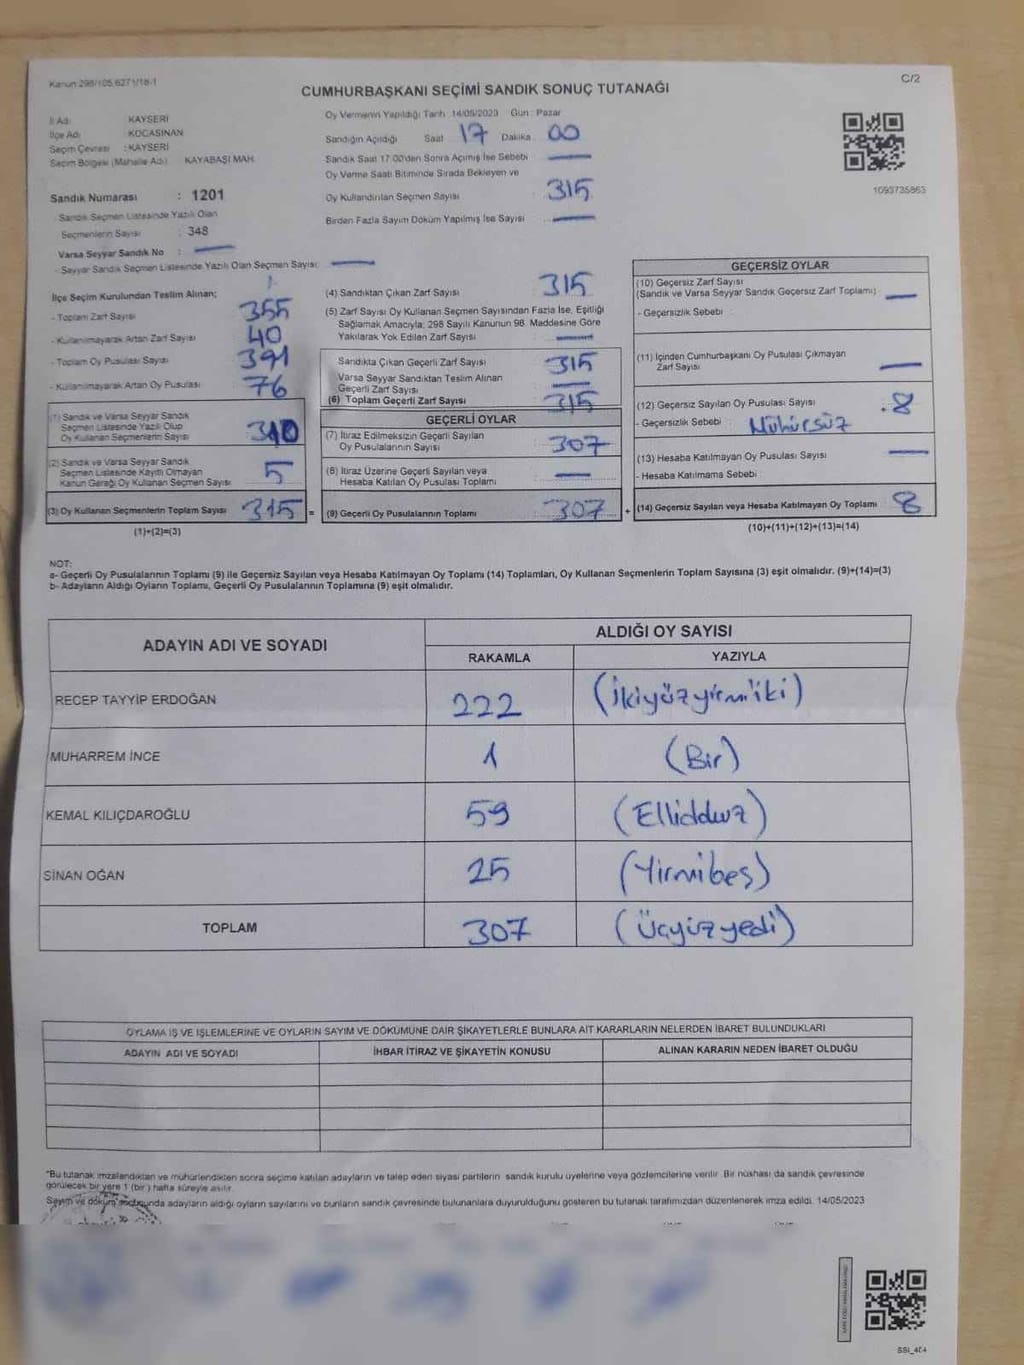 Kanun 298/105,6271/18-1
C/2
CUMHURBAŞKANI SEÇİMİ SANDIK SONUÇ TUTANAĞI
İl Adı KAYSERİ
İlçe Adı KOCASİNAN
Seçim Çevresi : KAYSERİ
Seçim Bölgesi (Mahalle Adı) KAYABAŞI MAH.
Sandık Numarası : 1201
Sandık Seçmen Listesinde Yazılı Olan
Seçmenlerin Sayısı : 348
Varsa Seyyar Sandık No :
- Seyyar Sandık Seçmen Listesinde Yazılı Olan Seçmen Sayısı:
Oy Vermenin Yapıldığı Tarih 14/05/2023 Gün : Pazar
Sandığın Açıldığı Saat 17 Dakika 00
Sandık Saat 17.00'den Sonra Açılmış İse Sebebi
Oy Verme Saati Bitiminde Sırada Bekleyen ve
Oy Kullandırılan Seçmen Sayısı : 315
Birden Fazla Sayım Döküm Yapılmış İse Sayısı
1093735863
İlçe Seçim Kurulundan Teslim Alınan;
- Toplam Zarf Sayısı 355
- Kullanılmayarak Artan Zarf Sayısı 40
- Toplam Oy Pusulası Sayısı 391
- Kullanılmayarak Artan Oy Pusulası 76
(1) Sandık ve Varsa Seyyar Sandık
Seçmen Listesinde Yazılı Olup
Oy Kullanan Seçmenlerin Sayısı 310
(2) Sandık ve Varsa Seyyar Sandık
Seçmen Listesinde Kayıtlı Olmayan
Kanun Gereği Oy Kullanan Seçmen Sayısı 5
(3) Oy Kullanan Seçmenlerin Toplam Sayısı 315 =
(1)+(2)=(3)
(4) Sandıktan Çıkan Zarf Sayısı 315
(5) Zarf Sayısı Oy Kullanan Seçmen Sayısından Fazla İse, Eşitliği
Sağlamak Amacıyla; 298 Sayılı Kanunun 98. Maddesine Göre
Yakılarak Yok Edilen Zarf Sayısı
Sandıkta Çıkan Geçerli Zarf Sayısı 315
Varsa Seyyar Sandıktan Teslim Alınan
Geçerli Zarf Sayısı
(6) Toplam Geçerli Zarf Sayısı 315
GEÇERLİ OYLAR
(7) İtiraz Edilmeksizin Geçerli Sayılan
Oy Pusulalarının Sayısı 307
(8) İtiraz Üzerine Geçerli Sayılan veya
Hesaba Katılan Oy Pusulası Toplamı
(9) Geçerli Oy Pusulalarının Toplamı 307 +
GEÇERSİZ OYLAR
(10) Geçersiz Zarf Sayısı
(Sandık ve Varsa Seyyar Sandık Geçersiz Zarf Toplamı)
- Geçersizlik Sebebi :
(11) İçinden Cumhurbaşkanı Oy Pusulası Çıkmayan
Zarf Sayısı
(12) Geçersiz Sayılan Oy Pusulası Sayısı : 8
- Geçersizlik Sebebi : Mühürsüz
(13) Hesaba Katılmayan Oy Pusulası Sayısı
- Hesaba Katılmama Sebebi :
(14) Geçersiz Sayılan veya Hesaba Katılmayan Oy Toplamı 8
(10)+(11)+(12)+(13)=(14)
NOT:
a- Geçerli Oy Pusulalarının Toplamı (9) ile Geçersiz Sayılan veya Hesaba Katılmayan Oy Toplamı (14) Toplamları, Oy Kullanan Seçmenlerin Toplam Sayısına (3) eşit olmalıdır. (9)+(14)=(3)
b- Adayların Aldığı Oyların Toplamı, Geçerli Oy Pusulalarının Toplamına (9) eşit olmalıdır.
ADAYIN ADI VE SOYADI
ALDIĞI OY SAYISI
RAKAMLA YAZIYLA
RECEP TAYYİP ERDOĞAN 222 (İkiyüzyirmiiki)
MUHARREM İNCE 1 (Bir)
KEMAL KILIÇDAROĞLU 59 (Ellidokuz)
SİNAN OĞAN 25 (Yirmibeş)
TOPLAM 307 (Üçyüzyedi)
OYLAMA İŞ VE İŞLEMLERİNE VE OYLARIN SAYIM VE DÖKÜMÜNE DAİR ŞİKAYETLERLE BUNLARA AİT KARARLARIN NELERDEN İBARET BULUNDUKLARI
ADAYIN ADI VE SOYADI İHBAR İTİRAZ VE ŞİKAYETİN KONUSU ALINAN KARARIN NEDEN İBARET OLDUĞU
"Bu tutanak imzalandıktan ve mühürlendikten sonra seçime katılan adayların ve talep eden siyasi partilerin sandık kurulu üyelerine veya gözlemcilerine verilir. Bir nüshası da sandık çevresinde
görülecek bir yere 1 (bir) hafta süreyle asılır.
Sayım ve döküm sonucunda adayların aldığı oyların sayılarını ve bunların sandık çevresinde bulunanlara duyurulduğunu gösteren bu tutanak tarafımızdan düzenlenerek imza edildi. 14/05/2023